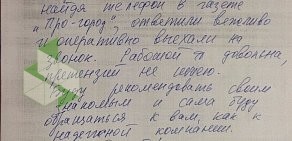 найдя телефон в газете
"Про-город", ответили вежливо
и оперативно выехали на
звонок. Работой я довольна,
претензии не имею.
Буду рекомендовать своим
знакомым и сама буду
обращаться к вам, как к
надёжной компании.